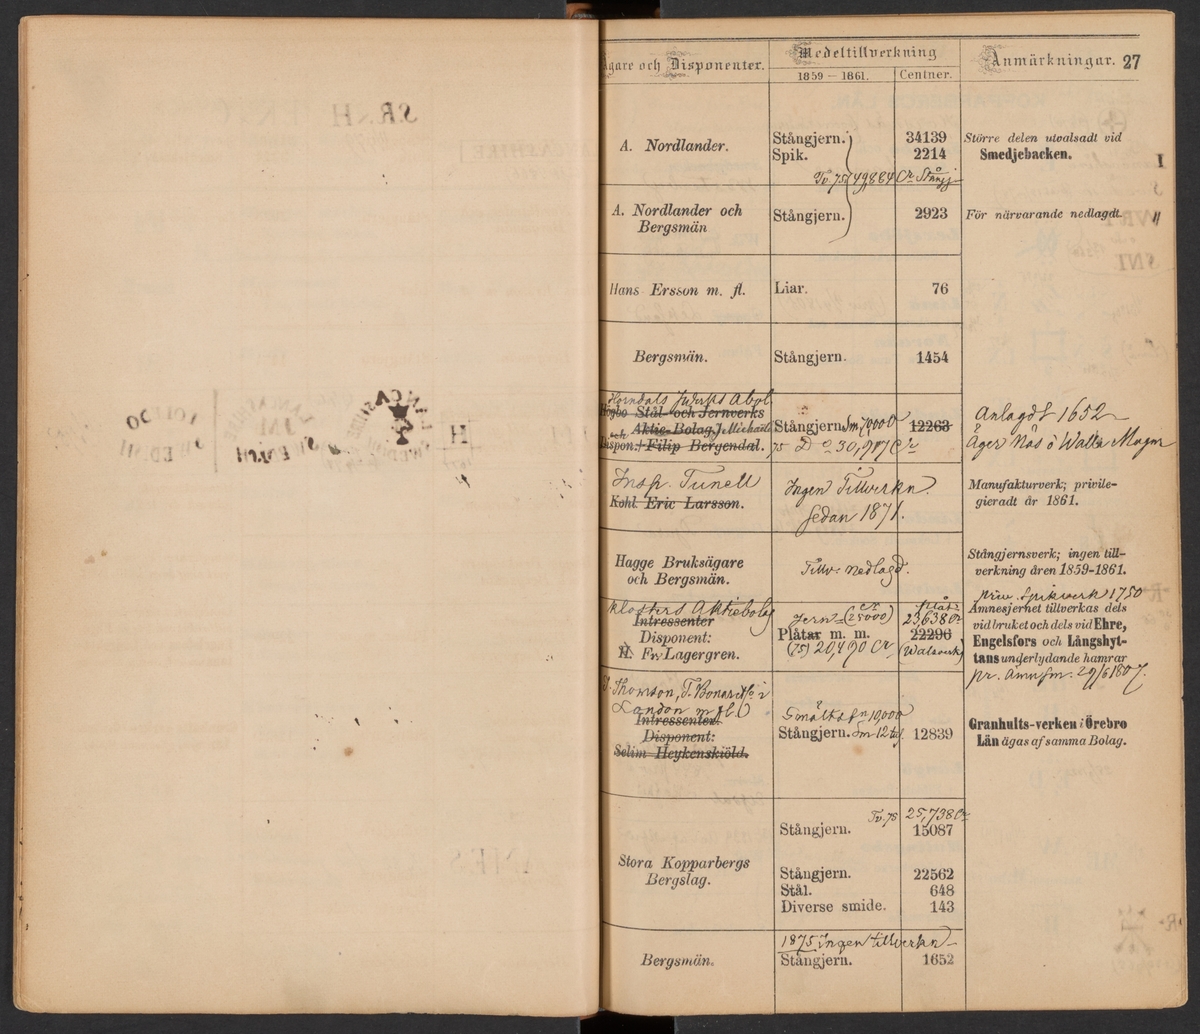 Ägare och Disponenter.
Medeltillverkning
1859 – 1861.
Centner.
Anmärkningar. 27
A. Nordlander.
Stångjern. 34139
Spik. 2214
Större delen utvalsadt vid
Smedjebacken.
Tv. 75 49,884 Cr Stångj
A. Nordlander och
Bergsmän
Stångjern. 2923
För närvarande nedlagdt.
Hans Ersson m. fl.
Liar. 76
Bergsmän.
Stångjern. 1454
Horndals Jernverks Abol.
Högbo Stål- och Jernverks
Aktie-Bolag, J. Michaeli
och
Dispon. Filip Bergendal.
Stångjern. Sm. 7,000 Cr 12263
75 Do 30,917 Cr
Anlagdt 1652
Äger Näs o Walla Magnr
Insp. Tunell
Kohl. Eric Larsson.
Ingen Tillverkn.
sedan 1871.
Manufakturverk; privile-
gieradt år 1861.
Hagge Bruksägare
och Bergsmän.
Tillv: nedlagd.
Stångjernsverk; ingen till-
verkning åren 1859-1861.
Klosters Aktiebolag
Intressenter
Disponent:
H. Fr. Lagergren.
Jern (25000) Cr
Plåtar m. m.
(75) 20,490 Cr
plåt
23,638 Cr
22296
(Walsverk)
priv. Spikverk 1750
Ämnesjernet tillverkas dels
vid bruket och dels vid Ehre,
Engelsfors och Långshyt-
tans underlydande hamrar
pr. Ämnsm. 29/6 1807.
J. Thomson, T. Bonar & Co i
London m fl.
Intressenter.
Disponent:
Selim Heykenskiöld.
Smälts fn 10,000
Stångjern. Sm 12 tus. 12839
Granhults-verken i Örebro
Län ägas af samma Bolag.
Stora Kopparbergs
Bergslag.
Tv. 75 25,738 Cr
Stångjern. 15087
Stångjern. 22562
Stål. 648
Diverse smide. 143
Bergsmän.
1875 Ingen tillverkn
Stångjern. 1652